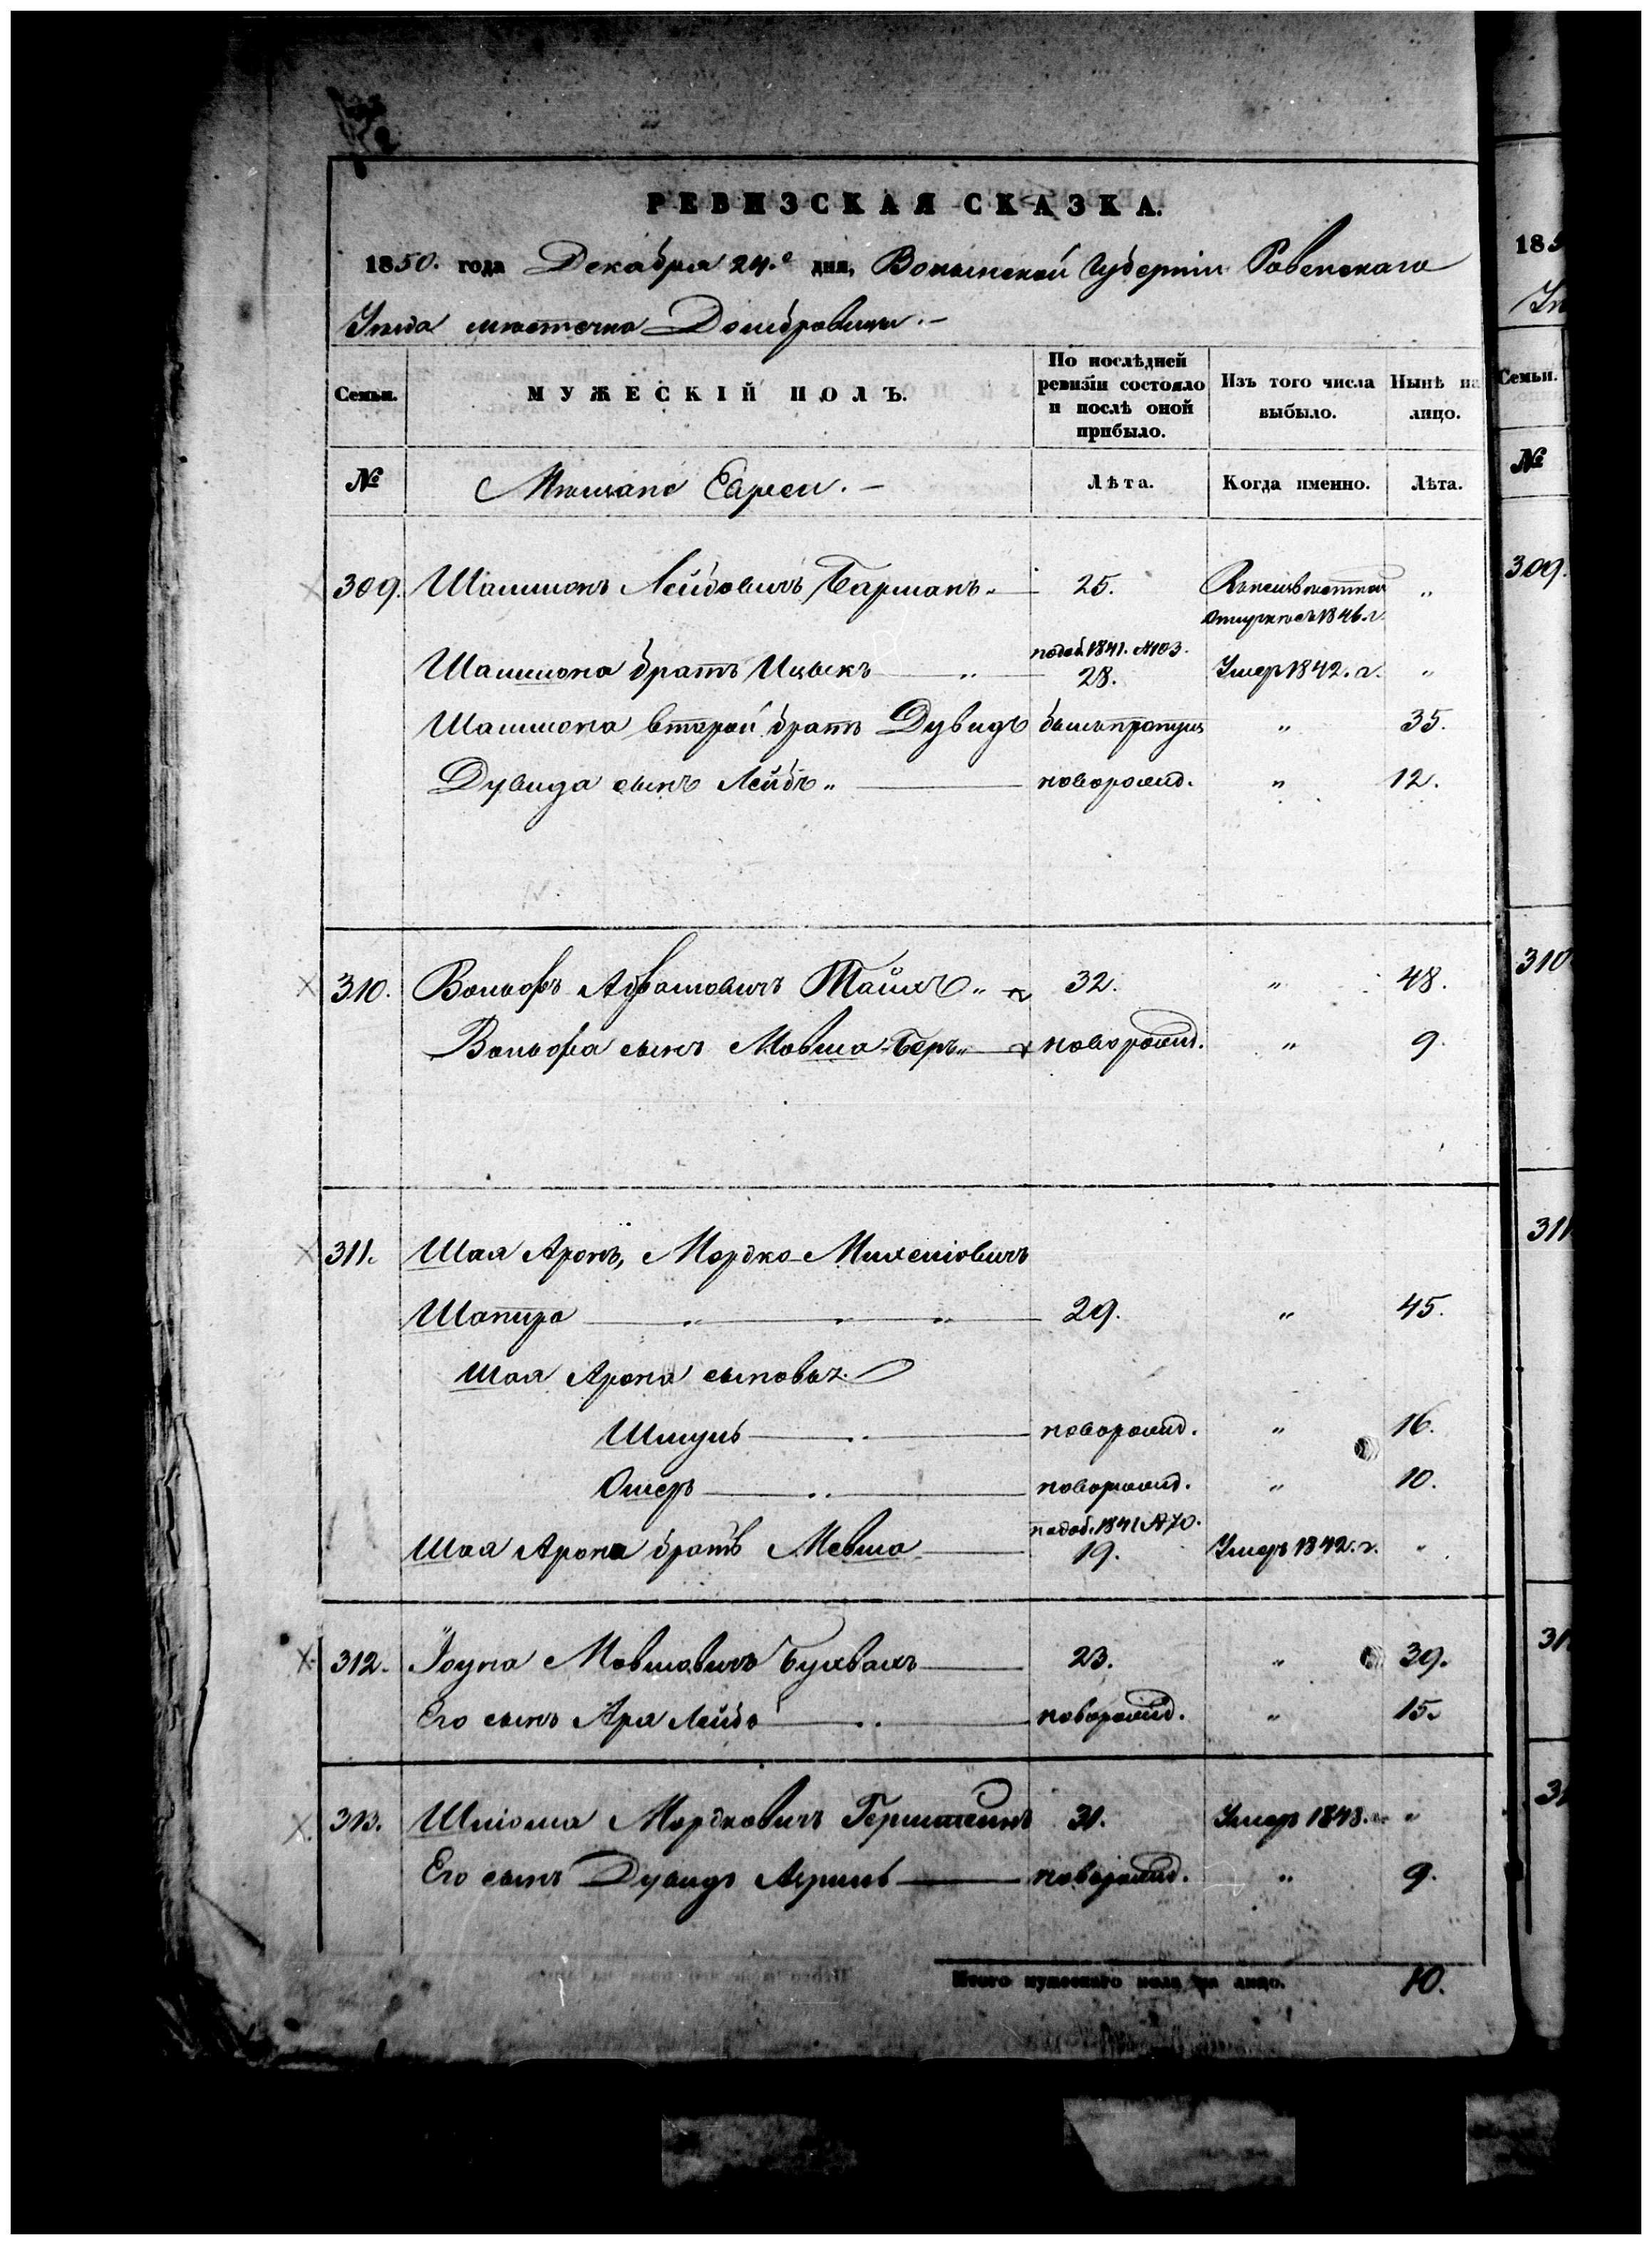 РЕВИЗСКАЯ СКАЗКА.
1850. года Декабря 24.го дня, Волынской Губерніи Ровенскаго
Уѣзда мѣстечка Домбровицы.-
Семьи.
МУЖЕСКІЙ ПОЛЪ.
По послѣдней ревизіи состояло и послѣ оной прибыло.
Изъ того числа выбыло.
Нынѣ на лицо.
№
Мѣщане Евреи. -
Лѣта.
Когда именно.
Лѣта.
309. Шамшонъ Лейбовичъ Барманъ 25. "
отпускѣ съ 1846.г.
подоб. 1841. №103.
Шамшона братъ Ицыкъ " 28. Умер 1842. г. "
Шамшона второй братъ Дувидъ былъ пропущ " 35.
Дувида сынъ Лейбъ " новорожд. " 12.
310. Вольфъ Абрамовичъ Тайхъ " 32. " 48.
Вольфа сынъ Мовша-Беръ " новорожд. " 9.
311. Шая Аронъ, Мордко-Михелiовичъ
Шапиро " " " 29. " 45.
Шая Арона сыновья:
Шмуль новорожд. " 16.
Ошеръ новорожд. " 10.
подоб. 1841 №70.
Шая Арона братъ Мовша 19. Умеръ 1842. г. "
312. Іоуна Мовшовичъ Бухвалъ 23. " 39.
Его сынъ Ара Лейбъ новорожд. " 15.
313. Шліома Мордковичъ Герштейнъ 31. Умеръ 1848. "
Его сынъ Дувидъ новорожд. " 9.
Итого мужескаго пола на лицо. 10.
185
Семьи.
№
309.
310
311
31
31